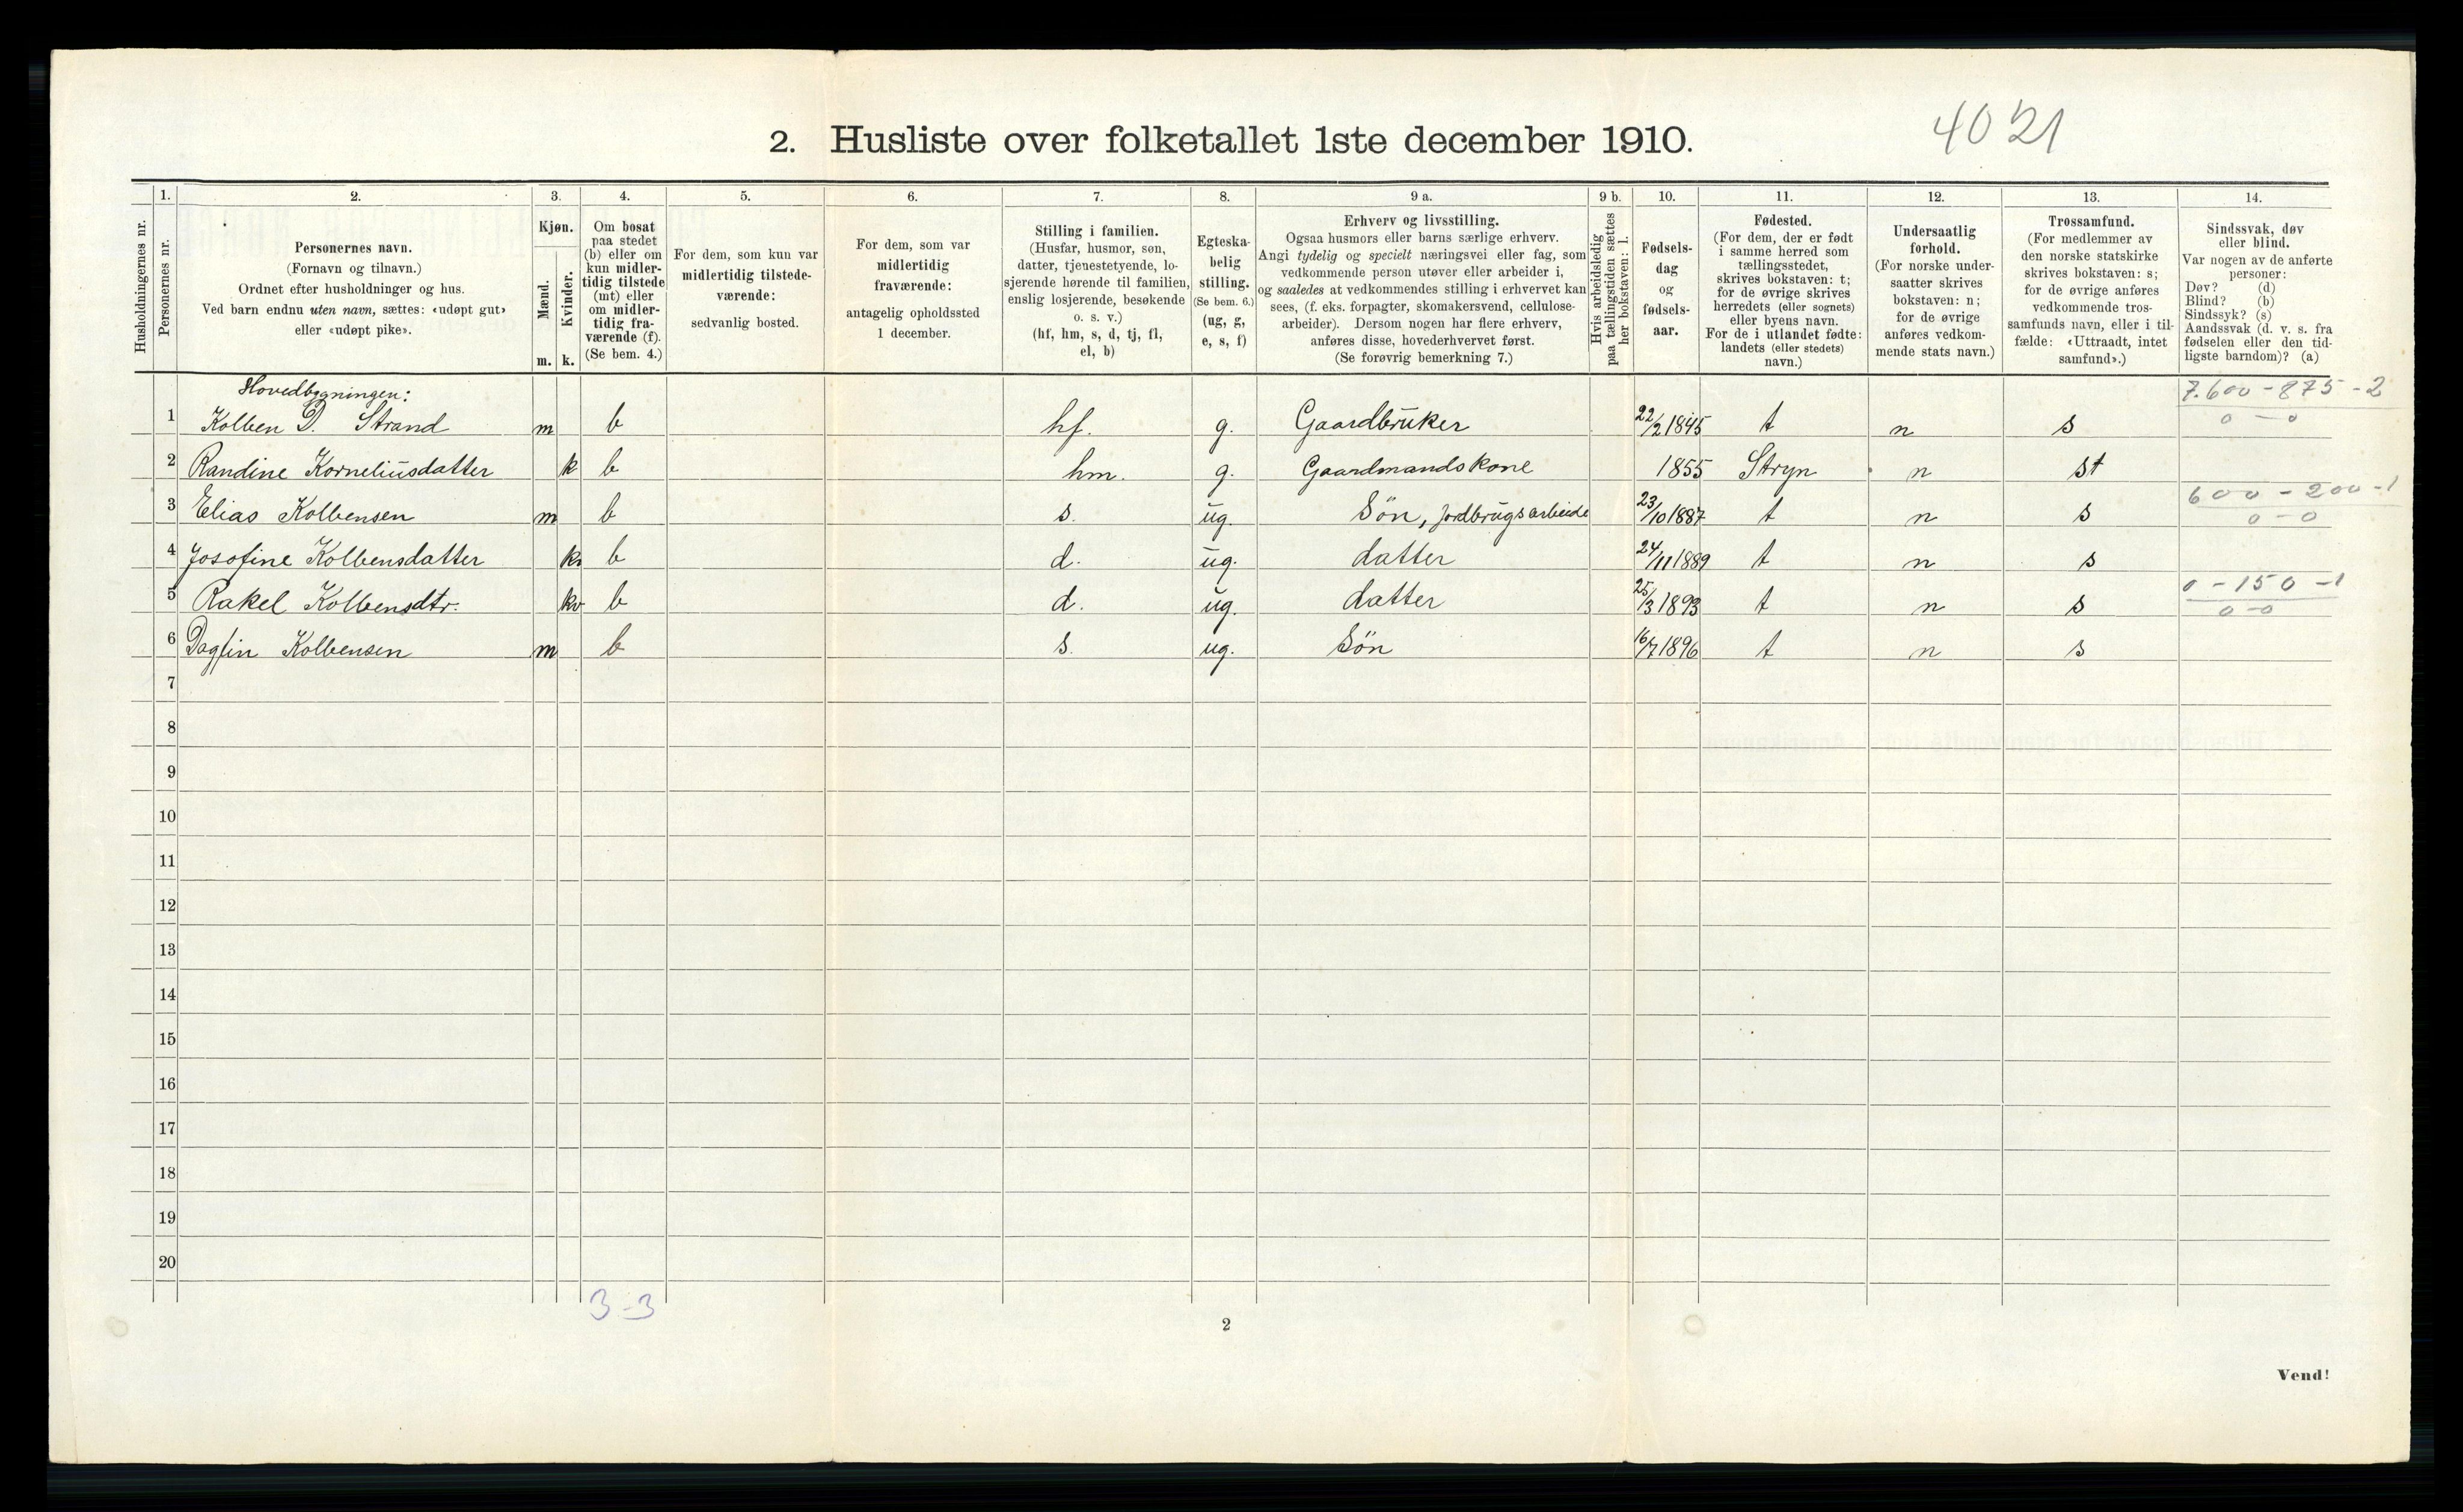 2. Husliste over folketallet 1ste december 1910.
4021
1. 2. 3. 4. 5. 6. 7. 8. 9 a. 9 b. 10. 11. 12. 13. 14.
Husholdningernes nr.
Personernes nr.
Personernes navn.
(Fornavn og tilnavn.)
Ordnet efter husholdninger og hus.
Ved barn endnu uten navn, sættes: «udøpt gut»
eller «udøpt pike».
Kjøn.
Mænd.
Kvinder.
m. k.
Om bosat
paa stedet
(b) eller om
kun midler-
tidig tilstede
(mt) eller
om midler-
tidig fra-
værende (f).
(Se bem. 4.)
For dem, som kun var
midlertidig tilstede-
værende:
sedvanlig bosted.
For dem, som var
midlertidig
fraværende:
antagelig opholdssted
1 december.
Stilling i familien.
(Husfar, husmor, søn,
datter, tjenestetyende, lo-
sjerende hørende til familien,
enslig losjerende, besøkende
o. s. v.)
(hf, hm, s, d, tj, fl,
el, b)
Egteska-
belig
stilling.
(Se bem. 6.)
(ug, g,
e, s, f)
Erhverv og livsstilling.
Ogsaa husmors eller barns særlige erhverv.
Angi tydelig og specielt næringsvei eller fag, som
vedkommende person utøver eller arbeider i,
og saaledes at vedkommendes stilling i erhvervet kan
sees, (f. eks. forpagter, skomakersvend, cellulose-
arbeider). Dersom nogen har flere erhverv,
anføres disse, hovederhvervet først.
(Se forøvrig bemerkning 7.)
Hvis arbeidsledig
paa tællingstiden sættes
her bokstaven: l.
Fødsels-
dag
og
fødsels-
aar.
Fødested.
(For dem, der er født
i samme herred som
tællingsstedet,
skrives bokstaven: t;
for de øvrige skrives
herredets (eller sognets)
eller byens navn.
For de i utlandet fødte:
landets (eller stedets)
navn.)
Undersaatlig
forhold.
(For norske under-
saatter skrives
bokstaven: n;
for de øvrige
anføres vedkom-
mende stats navn.)
Trossamfund.
(For medlemmer av
den norske statskirke
skrives bokstaven: s;
for de øvrige anføres
vedkommende tros-
samfunds navn, eller i til-
fælde: «Uttraadt, intet
samfund».)
Sindssvak, døv
eller blind.
Var nogen av de anførte
personer:
Døv? (d)
Blind? (b)
Sindssyk? (s)
Aandssvak (d. v. s. fra
fødselen eller den tid-
ligste barndom)? (a)
Hovedbygningen:
7.600 - 875 - 2
1 Kolben D. Strand m b hf. g. Gaardbruker 22/2 1845 t n s 0 - 0
2 Randine Korneliusdatter k b hm. g. Gaardmandskone 1855 Stryn n st
600 - 200 - 1
3 Elias Kolbensen m b s. ug. Søn, jordbrugsarbeide 23/10 1887 t n s 0 - 0
4 Josofine Kolbensdatter kv b d. ug. datter 24/11 1889 t n s
0 - 150 - 1
5 Rakel Kolbensdtr. kv b d. ug. datter 25/3 1893 t n s 0 - 0
6 Dagfin Kolbensen m b s. ug. Søn 16/7 1896 t n s
7
8
9
10
11
12
13
14
15
16
17
18
19
20
3 - 3
2
Vend!